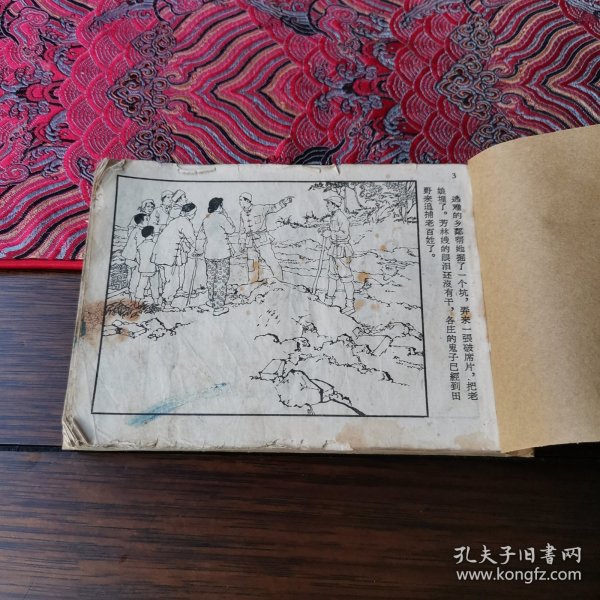 3
逃难的乡鄰帮她掘了一个坑，弄来一張破席片，把老
娘埋了。芳林嫂的眼泪还沒有干，各庄的鬼子已經到田
野来追捕老百姓了。
孔夫子旧書网
www.kongfz.com